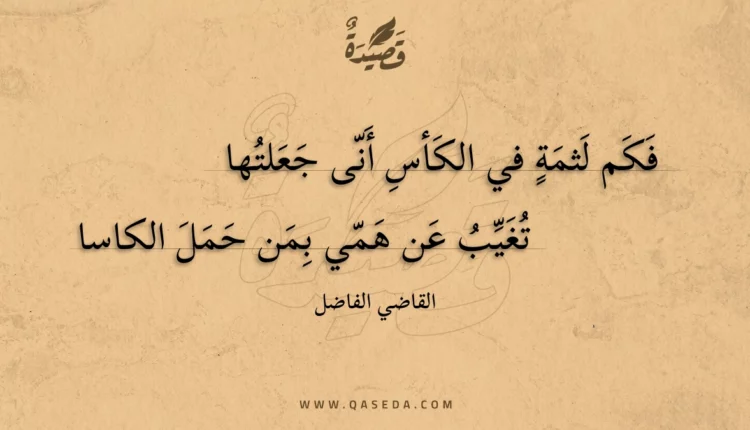 قَصِيدَةٌ
فَكَم لَثمَةٍ في الكَأسِ أَنّى جَعَلتُها
تُغَيِّبُ عَن هَمّي بِمَن حَمَلَ الكاسا
القاضي الفاضل
WWW.QASEDA.COM